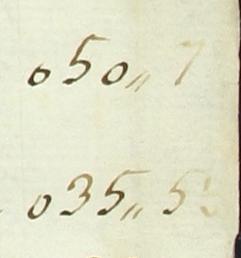 050,, 7
035,, 5